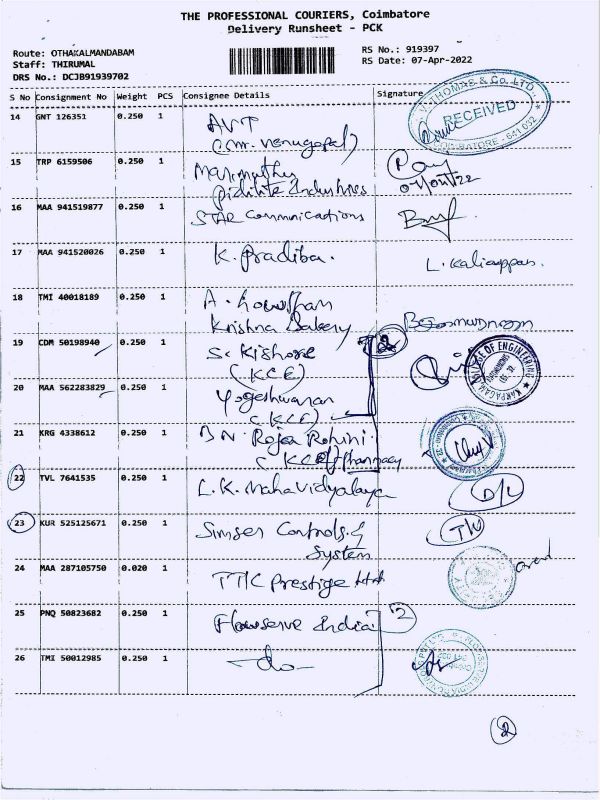 THE PROFESSIONAL COURIERS, Coimbatore
Delivery Runsheet - PCK
Route: OTHAKALMANDABAM
Staff: THIRUMAL
DRS No.: DCJB91939702
RS No.: 919397
RS Date: 07-Apr-2022
S No Consignment No Weight PCS Consignee Details Signature
14 GNT 126351 0.250 1 AVT
(Mr. Venugopal)
THOMAS & Co. LTD.
RECEIVED
COIMBATORE - 641 032
15 TRP 6159506 0.250 1 Marimuthu
Pidilite Industries
16 MAA 941519877 0.250 1 STAR Communications
17 MAA 941520026 0.250 1 K. Pradiba. L. Kaliappan.
18 TMI 40018189 0.250 1 A.
Krishna Bakery
19 CDM 50198940 0.250 1 S. Kishore 2
(KCE)
COLLEGE OF ENGINEERING
KARPAGAM
20 MAA 562283829 0.250 1 Yogeshwaran
(KCE)
21 KRG 4338612 0.250 1 B.N. Roja Rohini.
(KCE) Pharmacy
22 TVL 7641535 0.250 1 L.K. Mahavidyalaya D/L
23 KUR 525125671 0.250 1 Simser Controls &
System
24 MAA 287105750 0.020 1 TTK Prestige Ltd
25 PNQ 50823682 0.250 1 Flowserve India 2
26 TMI 50012985 0.250 1 -do-
2